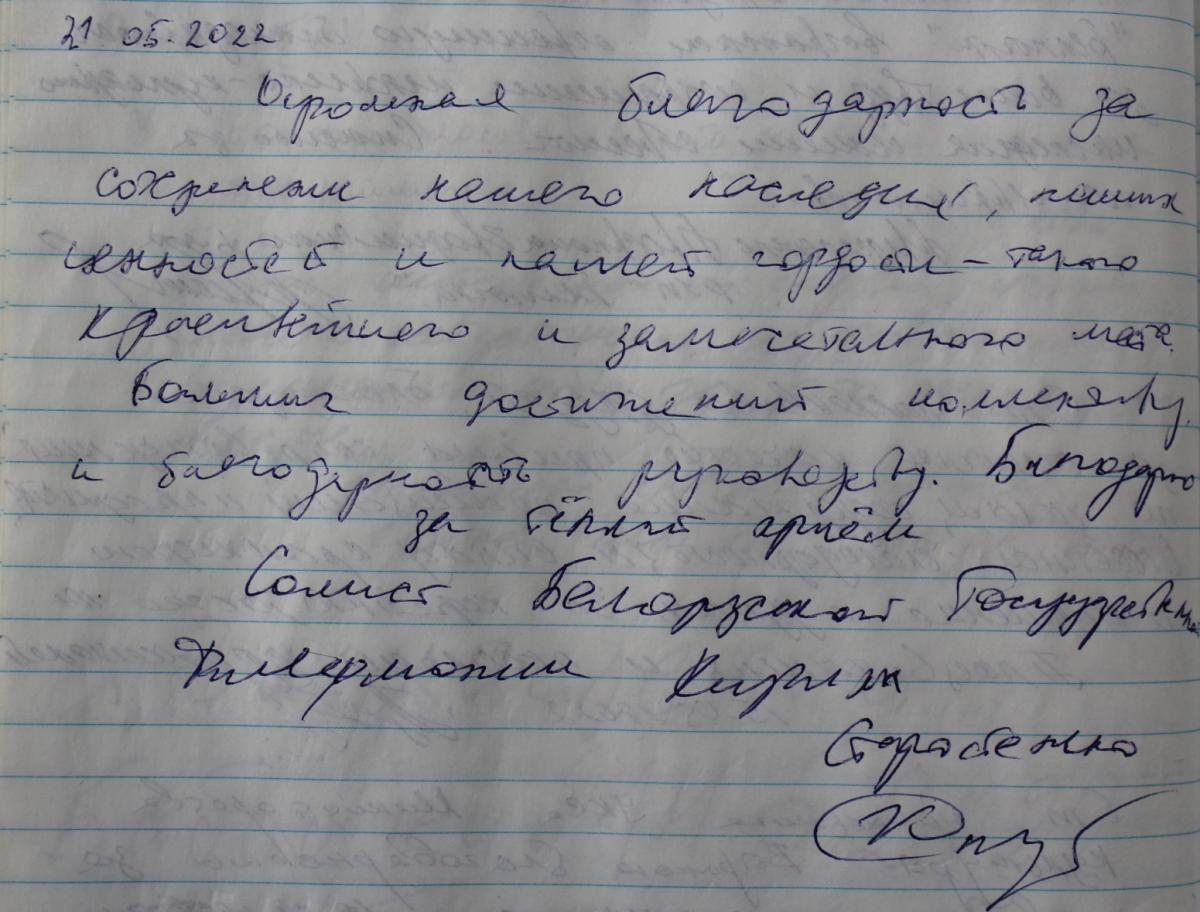 21 05.2022
Огромная благодарность за
сохранение нашего наследия, наших
ценностей и нашей гордости – такого
красивейшего и замечательного места.
Больших достижений коллективу
и благодарность руководству. Благодарю
за тёплый приём
Солист Белорусской Государственной
Филармонии Кирилл
Старостенко